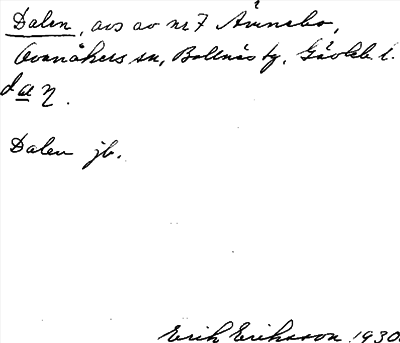 Dalen, avs av nr 7 Årnebo,
Ovanåkers sn, Bollnäs tg, Gävleb. l.
Dalen jb.
Erik Eriksson 1930